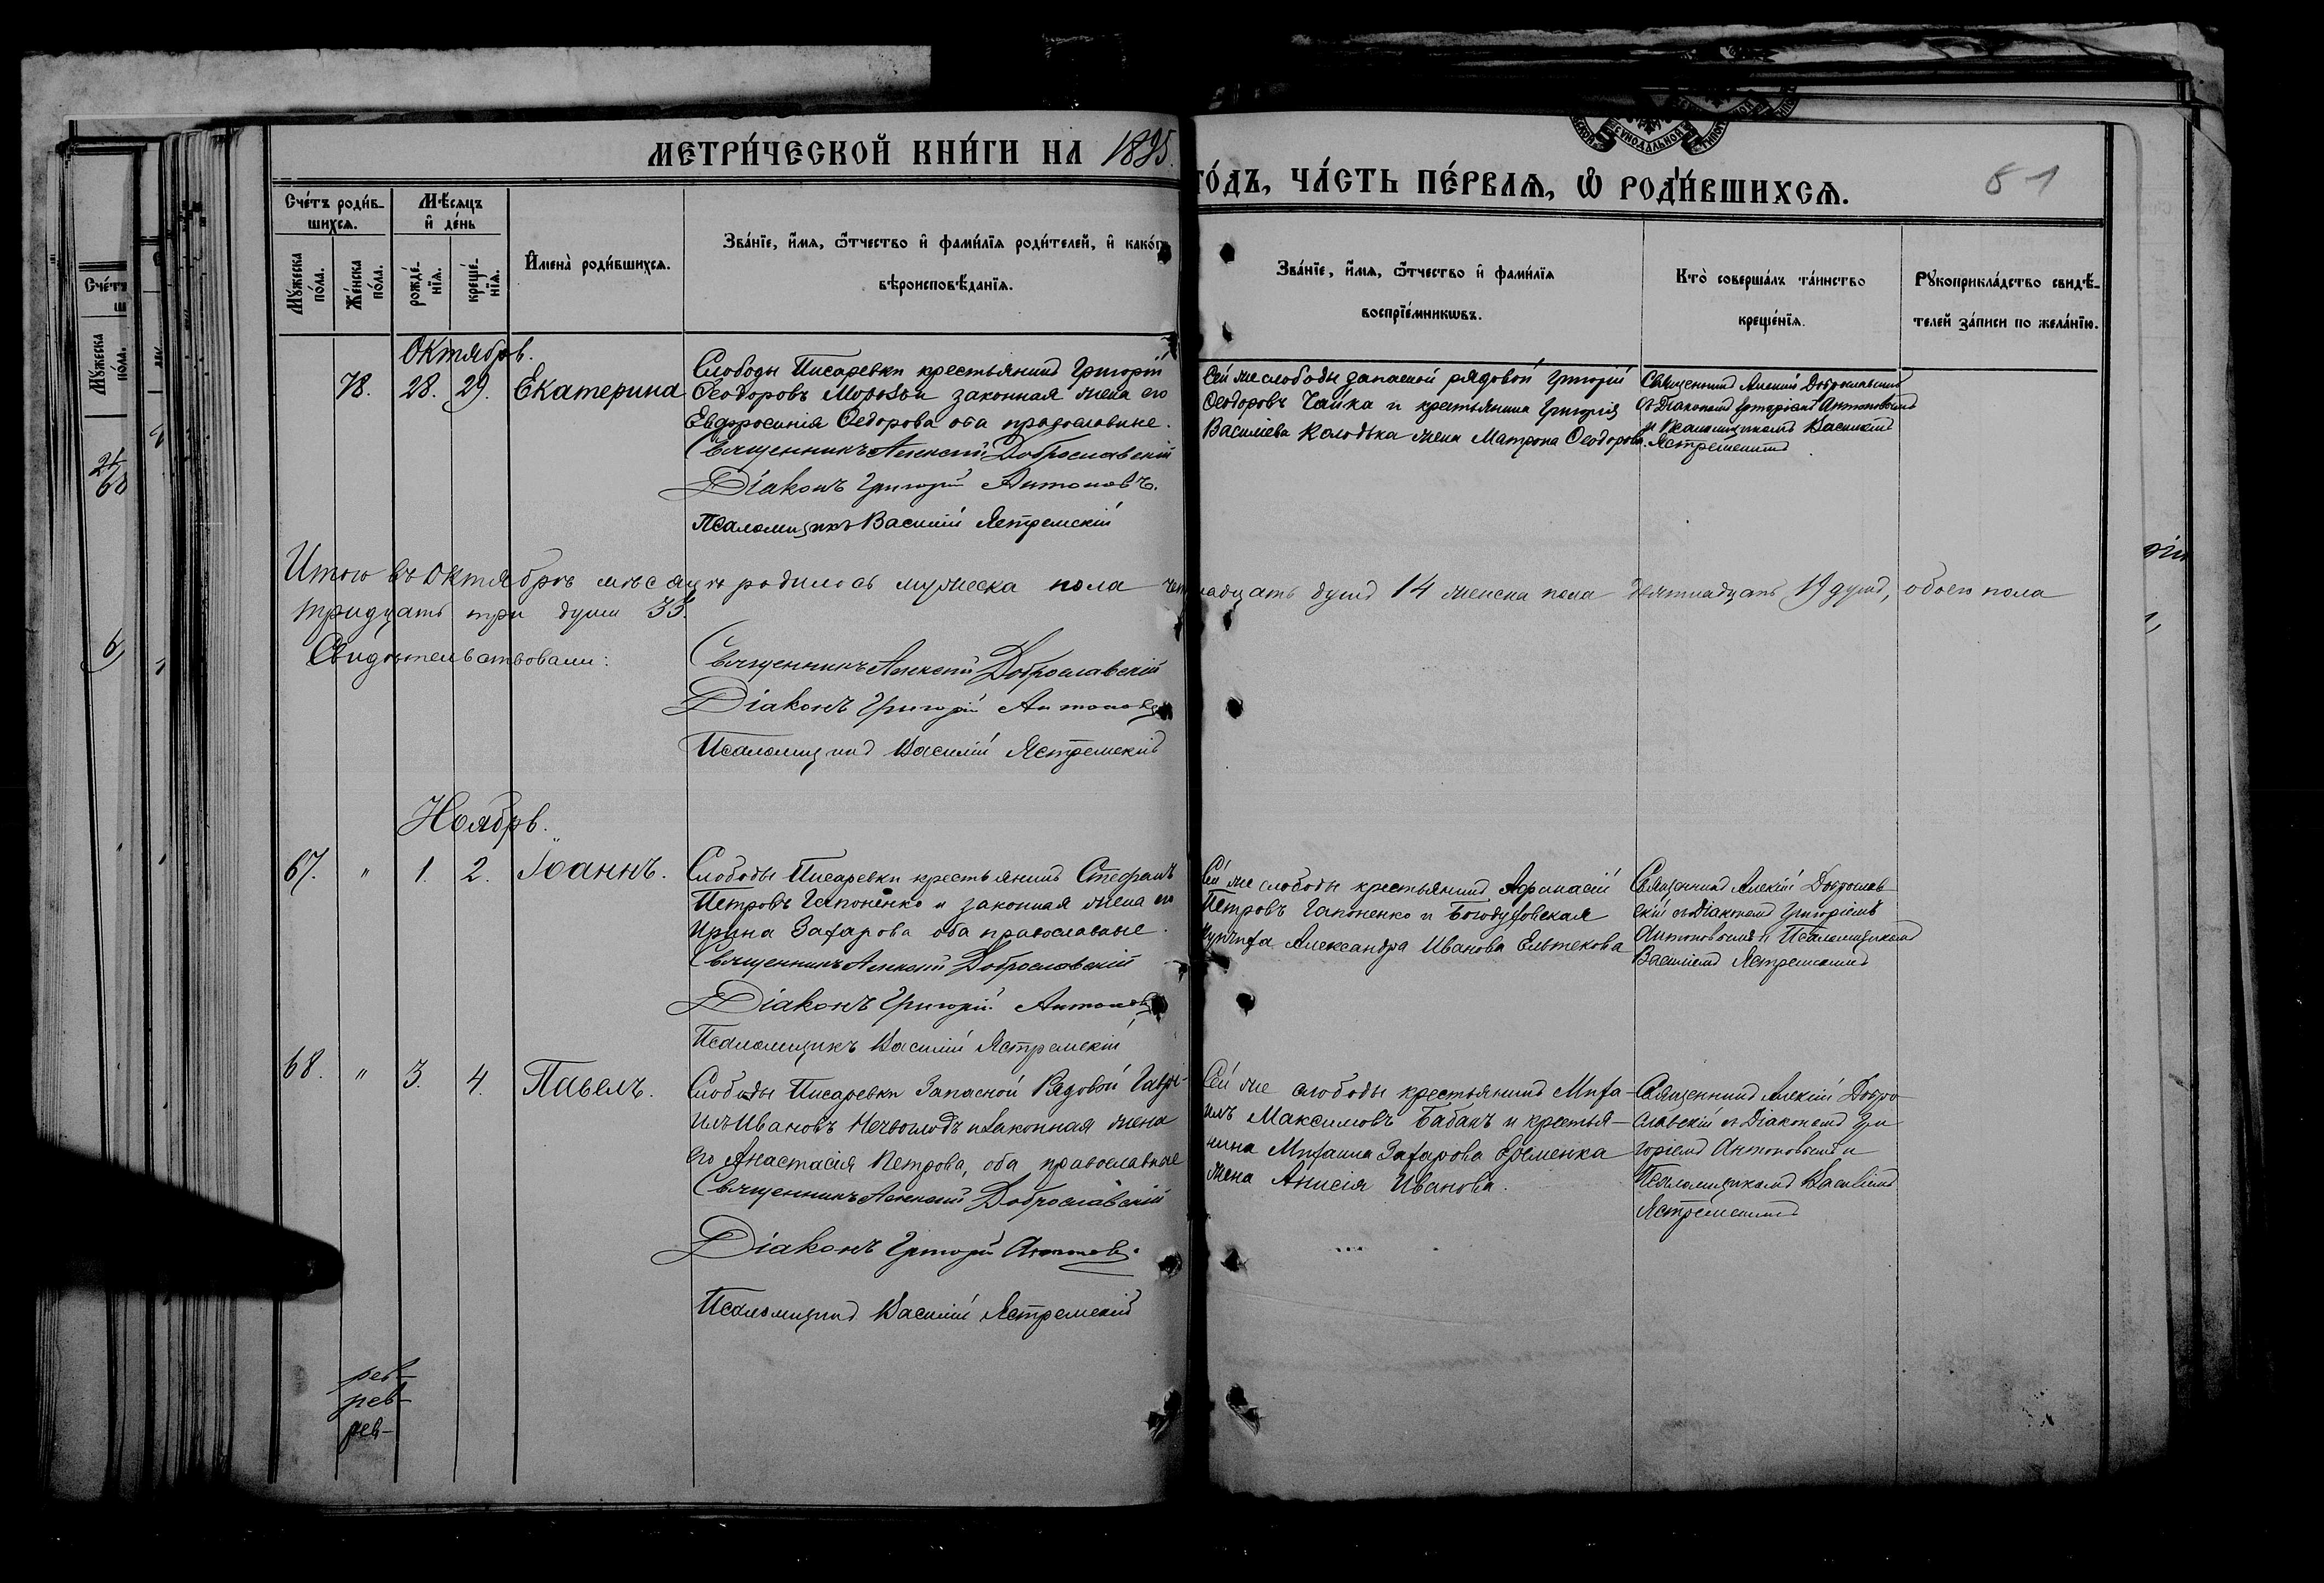 МЕТРИ́ЧЕСКОЙ КНИ́ГИ НА 1895.
ГО́ДЪ, ЧА́СТЬ ПЕ́РВАЯ, Ѡ҆ РОДИ́ВШИХСѦ.
51
Сче́тъ роди́в-
шихсѧ.
Мѣ́сѧцъ
и҆ де́нь
Мꙋ́жеска
по́ла.
Же́нска
по́ла.
рожде́-
нїѧ.
креще́-
нїѧ.
И҆мена̀ роди́вшихсѧ.
Зва́нїе, и҆́мѧ, ѻ҆́тчество и҆ фами́лїѧ роди́телей, и҆ како́гѡ
вѣроисповѣ́данїѧ.
Зва́нїе, и҆́мѧ, ѻ҆́тчество и҆ фами́лїѧ
воспрїе́мникѡвъ.
Кто̀ соверша́лъ та́инство
креще́нїѧ.
Рꙋкоприкла́дство свидѣ́-
телей за́писи по жела́нїю.
Октябрь.
78. 28. 29. Екатерина
Слободы Писаревки крестьянинъ Григорій
Ѳеодоровъ законная жена его
Евфросинія Ѳедорова оба православные.
Священникъ Алексій Доброславскій
Діаконъ Григорій Антоновъ.
Псаломщикъ Василій Ястремскій
Сей же слободы запасной рядовой Григорій
Ѳеодоровъ Чайка и крестьянина Григорія
Василіева Колодка жена Матрона Ѳеодорова.
Священникъ Алексій Доброславскій
съ Діакономъ Григоріемъ Антоновымъ
и Псаломщикомъ Василіемъ
Ястремскимъ
Итого въ октябрѣ мѣсяцѣ родилось мужеска пола четырнадцать душъ 14 женска пола девятнадцать 19 душъ, обоего пола
тридцать три души 33.
Свидѣтельствовали:
Священникъ Алексій Доброславскій
Діаконъ Григорій Антоновъ
Псаломщикъ Василій Ястремскій
Ноябрь.
67. " 1. 2. Іоаннъ.
Слободы Писаревки крестьянинъ Стефанъ
Петровъ Гапоненко и законная жена его
Ирина Захарова оба православные.
Священникъ Алексій Доброславскій
Діаконъ Григорій Антоновъ
Псаломщикъ Василій Ястремскій
Сей же слободы крестьянинъ Афанасій
Петровъ Гапоненко и Богодуховская
купчиха Александра Иванова Ельтекова
Священникъ Алексій Доброслав-
скій съ Діакономъ Григоріемъ
Антоновымъ и Псаломщикомъ
Василіемъ Ястремскимъ
68. " 3. 4. Павелъ.
Слободы Писаревки Запасной Рядовой Гаврі-
илъ Ивановъ Нечволодъ и законная жена
его Анастасія Петрова, оба православные
Священникъ Алексій Доброславскій
Діаконъ Григорій Антоновъ.
Псаломщикъ Василій Ястремскій
Сей же слободы крестьянинъ Миха-
илъ Максимовъ Бабакъ и крестья-
нина Михаила Захарова Еременка
жена Анисія Иванова.
Священникъ Алексій Добро-
славскій съ Діакономъ Гри
горіемъ Антоновымъ и
Псаломщикомъ Василіемъ
Ястремскимъ
рев-
рев-
рев-